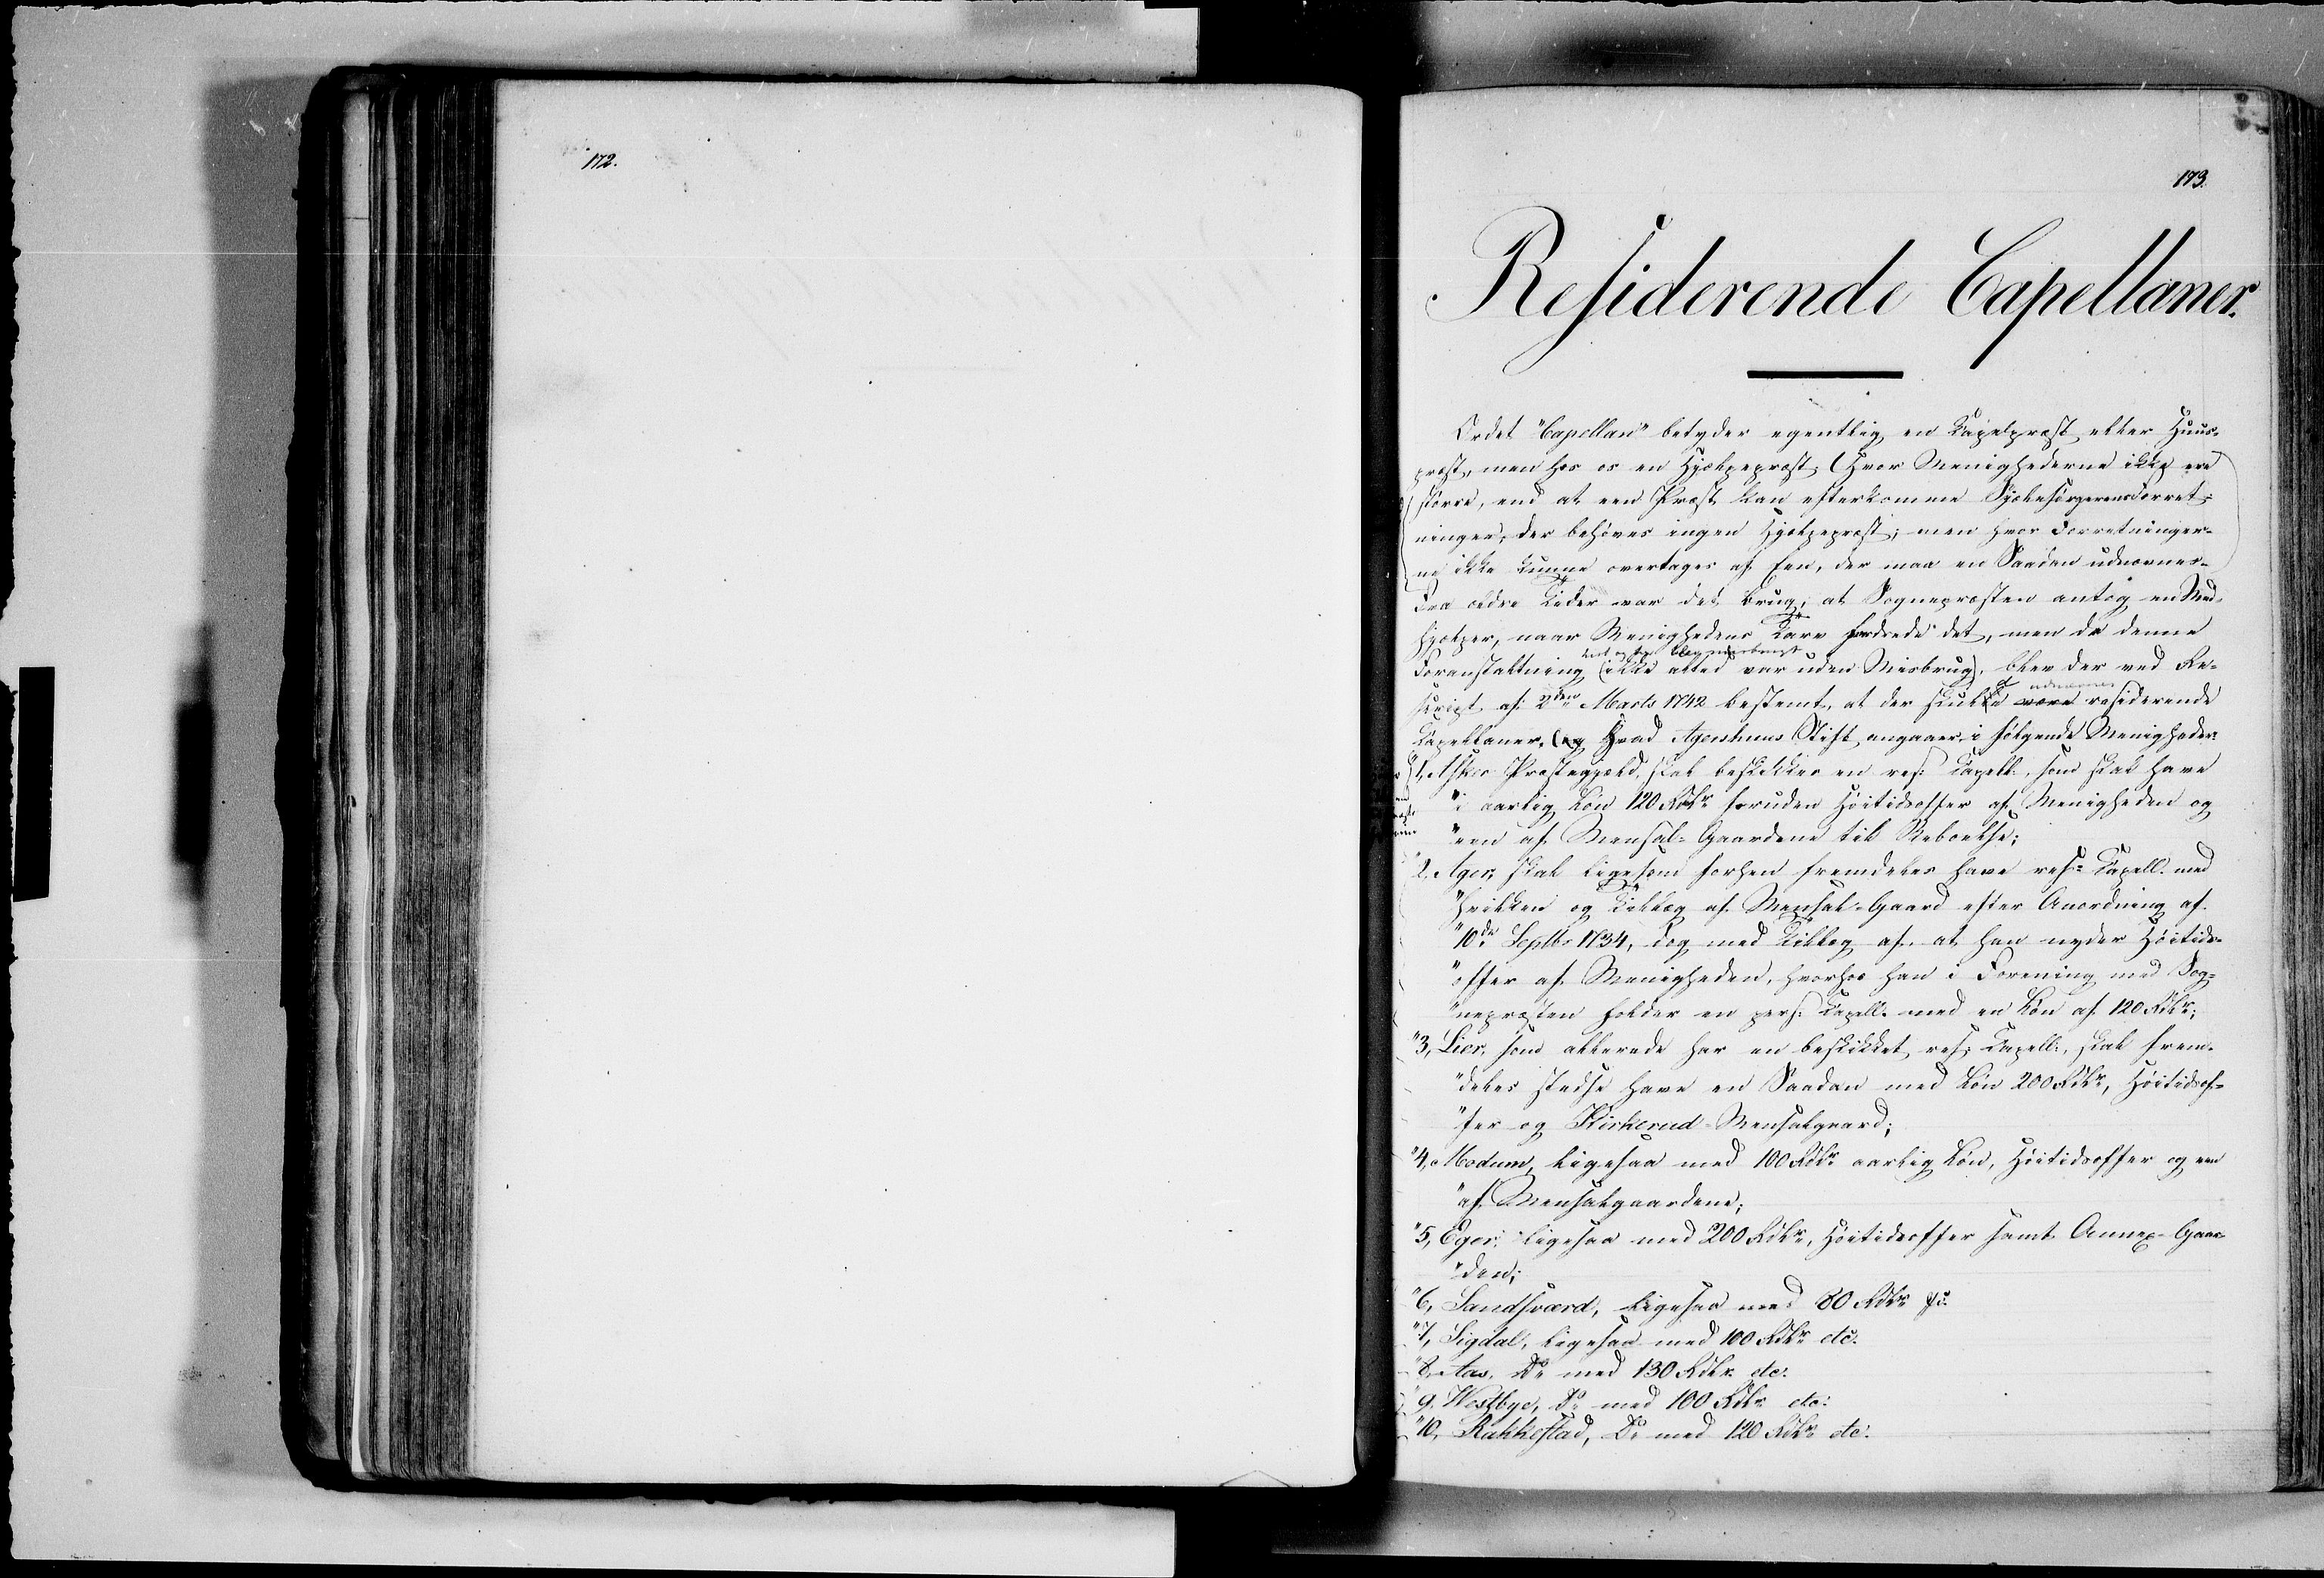 172.
173.
Residerende Capellaner.
Ordet "Capellan" betyder egentlig en Kapelpræst eller Huus-
præst, men hos os en Hjælpepræst. (Hvor Menighederne ikke ere
større, end at een Præst kan efterkomme Sjælesørgerens Forret-
ninger, der behøves ingen Hjælpepræst; men hvor Forretninger-
ne ikke kunne overtages af Een, der maa en Saadan udnævnes.)
Fra ældre Tider var det brug, at Sognepræsten antog en Med-
hjælper, naar Menighedens Tarv fordrede det, men da denne
blev misbrugt
Foranstaltning (ikke altid var uden Misbrug), blev der ved Re-
udnævnes
skript af 2den Marts 1742 bestemt, at der skulde være residerende
Kapellaner, (og Hvad Agershuus Stift angaaer i følgende Menigheder:
"1, Asker Præstegjæld, skal beskikkes en res: Kapell:, som skal have
"i aarlig Løn 120 Rdlr foruden Høitidsoffer af Menigheden og
"een af Mensal-Gaardene til Beboelse;
"2. Ager, skal ligesom forhen fremdeles have res: Kapell: med
"Hvilken og Tillæg af Mensal-Gaard efter Anordning af
"10de Septbr 1734, dog med Tillæg af, at han nyder Høitids-
"offer af Menigheden, hvorhos han i Forening med Sog-
"nepræsten holder en pers: Kapell: med en Løn af 120 Rdlr;
"3, Lier, som allerede har en beskikket res: Kapell:, skal frem-
"deles stedse have en Saadan med Løn 200 Rdlr, Høitidsof-
"fer og Kirkerud-Mensalgaard;
"4, Modum, ligesaa med 100 Rdlr aarlig Løn, Høitidsoffer og een
"af Mensalgaardene;
"5, Eger, ligesaa med 200 Rdlr, Høitidsoffer samt Annex-Gaar-
"den;
"6, Sandsværd, ligesaa med 80 Rdlr etc.
"7, Sigdal, ligesaa med 100 Rdlr etc.
"8, Aas, Do med 130 Rdlr etc.
"9, Westbye, Do med 100 Rdlr etc:
"10, Rakkestad, Do med 120 Rdlr etc.